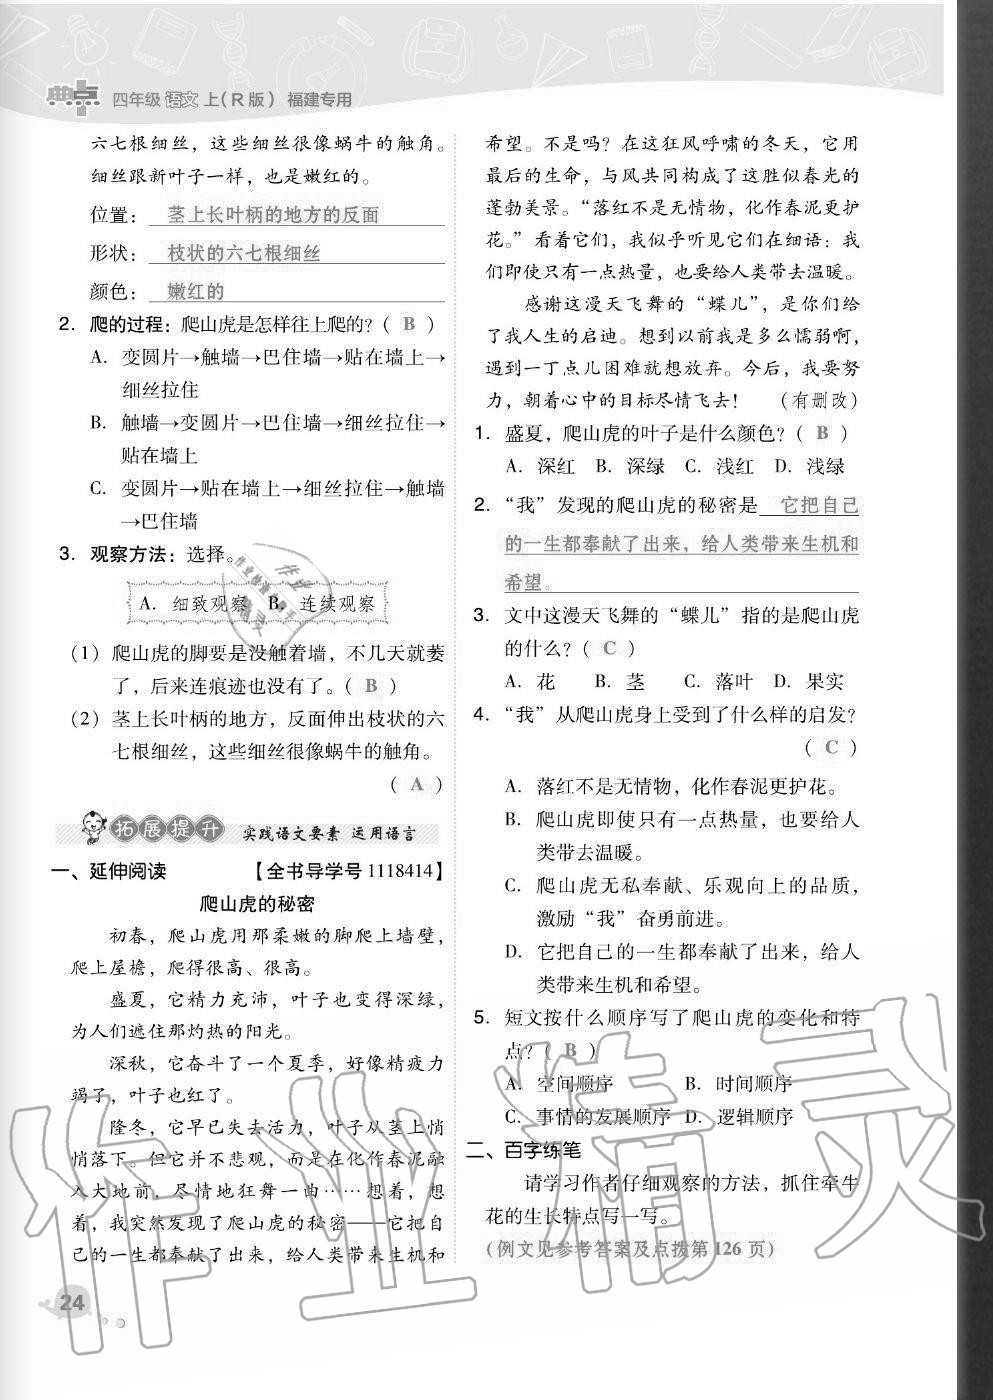 典点 四年级 语文 上(R版) 福建专用
六七根细丝，这些细丝很像蜗牛的触角。
细丝跟新叶子一样，也是嫩红的。
位置：茎上长叶柄的地方的反面
形状：枝状的六七根细丝
颜色：嫩红的
2. 爬的过程：爬山虎是怎样往上爬的？( B )
A. 变圆片→触墙→巴住墙→贴在墙上→
细丝拉住
B. 触墙→变圆片→巴住墙→细丝拉住→
贴在墙上
C. 变圆片→贴在墙上→细丝拉住→触墙
→巴住墙
3. 观察方法：选择。
A. 细致观察 B. 连续观察
(1) 爬山虎的脚要是没触着墙，不几天就萎
了，后来连痕迹也没有了。( B )
(2) 茎上长叶柄的地方，反面伸出枝状的六
七根细丝，这些细丝很像蜗牛的触角。
( A )
拓展提升 实践语文要素 运用语言
一、延伸阅读 【全书导学号1118414】
爬山虎的秘密
初春，爬山虎用那柔嫩的脚爬上墙壁，
爬上屋檐，爬得很高、很高。
盛夏，它精力充沛，叶子也变得深绿，
为人们遮住那灼热的阳光。
深秋，它奋斗了一个夏季，好像精疲力
竭了，叶子也红了。
隆冬，它早已失去活力，叶子从茎上悄
悄落下。但它并不悲观，而是在化作春泥融
入大地前，尽情地狂舞一曲……想着，想
着，我突然发现了爬山虎的秘密——它把自
己的一生都奉献了出来，给人类带来生机和
24
希望。不是吗？在这狂风呼啸的冬天，它用
最后的生命，与风共同构成了这胜似春光的
蓬勃美景。“落红不是无情物，化作春泥更护
花。”看着它们，我似乎听见它们在细语：我
们即使只有一点热量，也要给人类带去温暖。
感谢这漫天飞舞的“蝶儿”，是你们给
了我人生的启迪。想到以前我是多么懦弱啊，
遇到一丁点儿困难就想放弃。今后，我要努
力，朝着心中的目标尽情飞去！ (有删改)
1. 盛夏，爬山虎的叶子是什么颜色？( B )
A. 深红 B. 深绿 C. 浅红 D. 浅绿
2. “我”发现的爬山虎的秘密是 它把自己
的一生都奉献了出来，给人类带来生机和
希望。
3. 文中这漫天飞舞的“蝶儿”指的是爬山虎
的什么？( C )
A. 花 B. 茎 C. 落叶 D. 果实
4. “我”从爬山虎身上受到了什么样的启发？
( C )
A. 落红不是无情物，化作春泥更护花。
B. 爬山虎即使只有一点热量，也要给人
类带去温暖。
C. 爬山虎无私奉献、乐观向上的品质，
激励“我”奋勇前进。
D. 它把自己的一生都奉献了出来，给人
类带来生机和希望。
5. 短文按什么顺序写了爬山虎的变化和特
点？( B )
A. 空间顺序 B. 时间顺序
C. 事情的发展顺序 D. 逻辑顺序
二、百字练笔
请学习作者仔细观察的方法，抓住牵牛
花的生长特点写一写。
(例文见参考答案及点拨第126页)
作业精灵